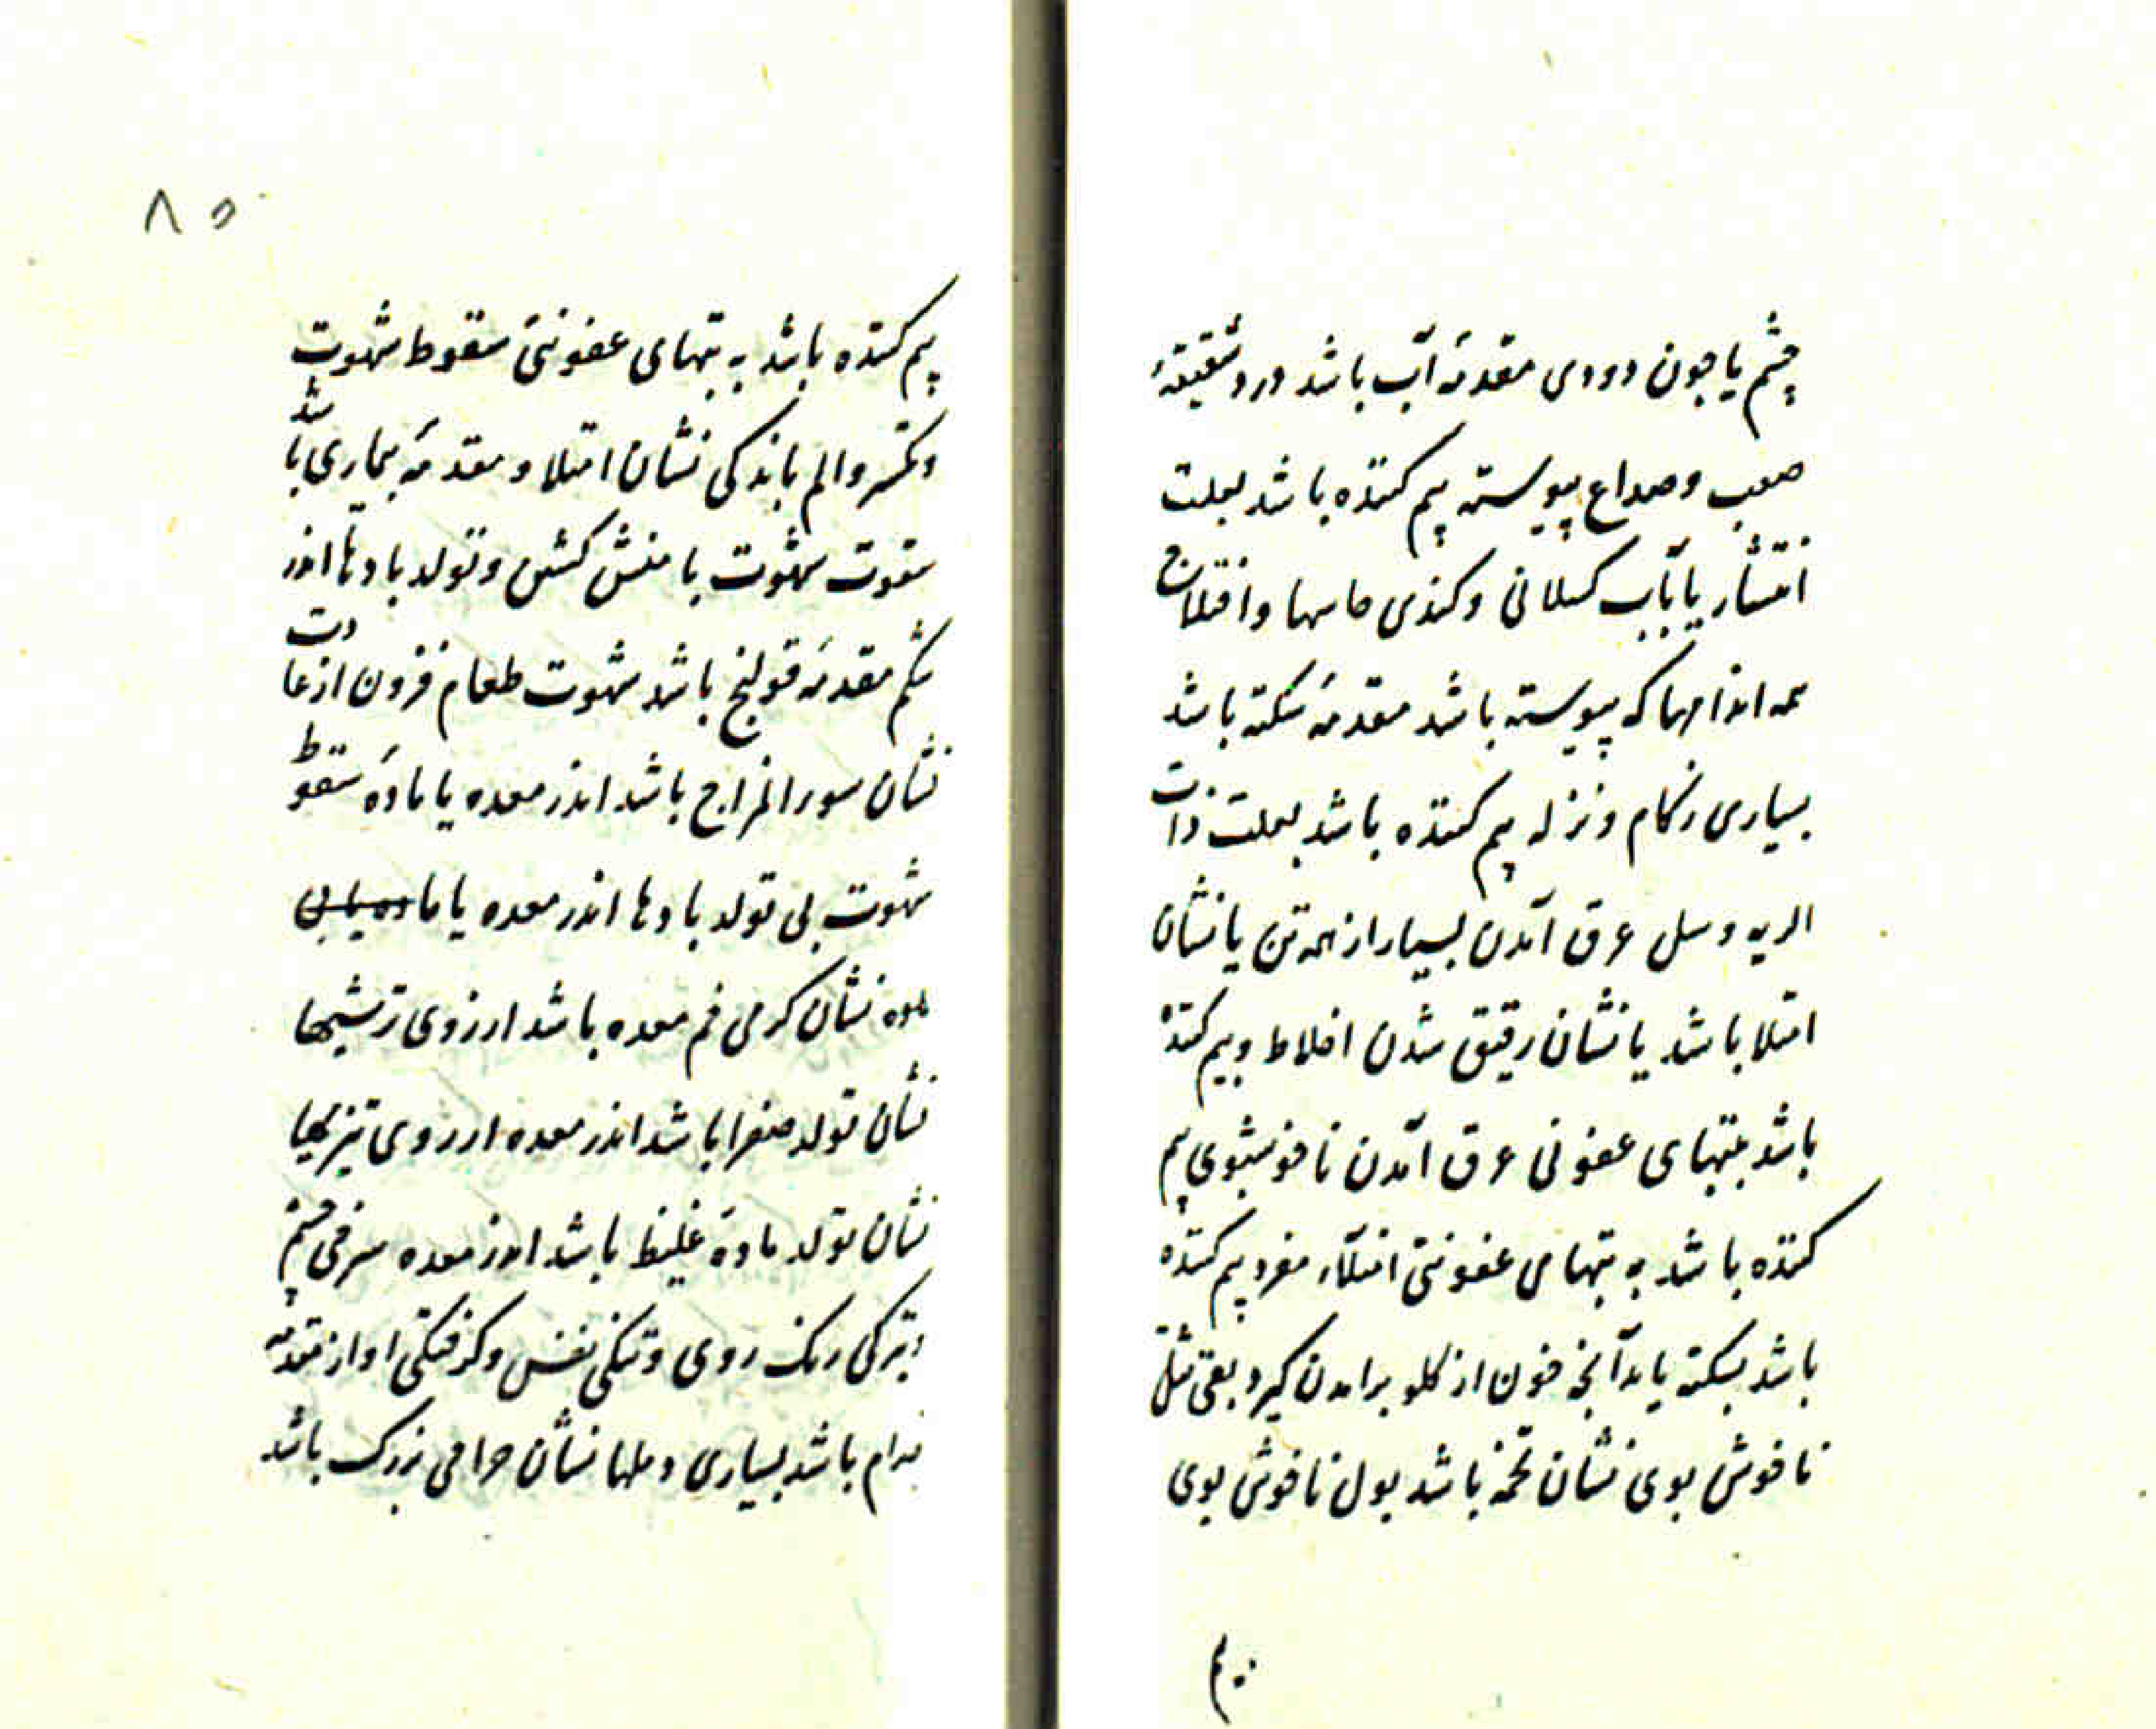 چشم یا چون دودی مقدمهٔ آب باشد درد شقیقهٔ
صعب و صداع پیوسته بیم کننده باشد بعلت
انتشار یا بآب کسلانی و کندی حاسها و اختلاج
همه اندامها که پیوسته باشد مقدمهٔ سکته باشد
بسیاری زکام و نزله بیم کننده باشد بعلت ذات
الریه و سل عرق آمدن بسیار از همه تن یا نشان
امتلا باشد یا نشان رقیق شدن اخلاط و بیم کننده
باشد بتبهای عفونی عرق آمدن ناخوشبوی بیم
کننده باشد به تبهای عفونتی امتلآء مفرد بیم کننده
باشد بسکته یا بدآنچه خون از کلو برامدن کیرد بقی ثفل
ناخوش بوی نشان تخمه باشد بول ناخوش بوی
بیم
۸۵
بیم کننده باشد به تبهای عفونتی سقوط شهوت
و تکسر والم ماندکی نشان امتلا و مقدمهٔ بیماری باشد
سقوت شهوت با منش کشتن و تولد بادها اندر
شکم مقدمهٔ قولنج باشد شهوت طعام فزون از عادت
نشان سوء المزاج باشد اندر معده یا مادهٔ سقوط
شهوت بی تولد بادها اندر معده یا ما
ماده نشان کرمی فم معده باشد ارزوی ترشیها
نشان تولد صفرا باشد اندر معده ارزوی تیزیها
نشان تولد مادهٔ غلیظ باشد اندر معده سرخی چشم
و تیرکی رنک روی و تنکی نفس و کرفتکی اواز مقدمهٔ
جذام باشد بسیاری دملها نشان خراجی بزرک باشد